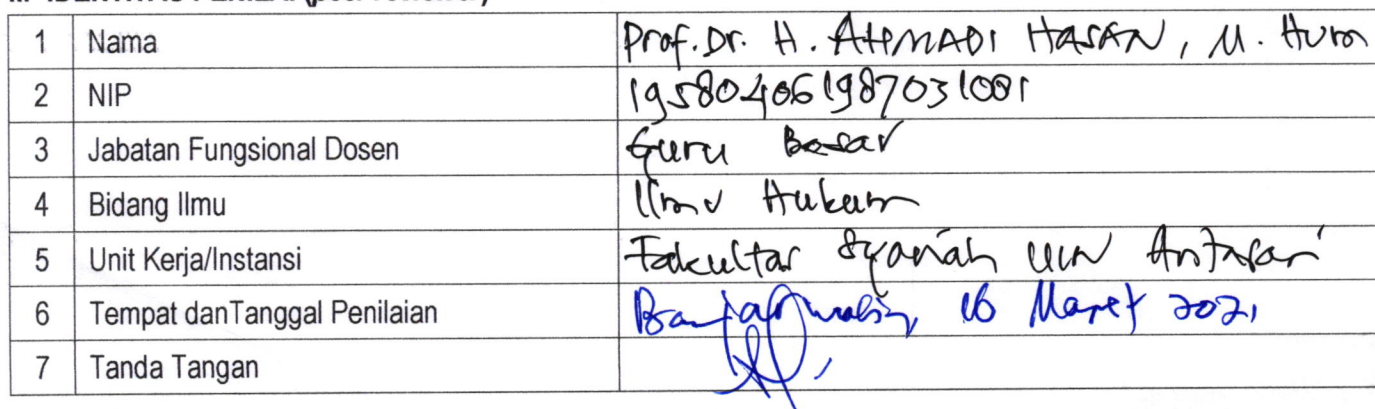 1 Nama Prof. Dr. H. AHMADI HASAN, M. Hum
2 NIP 195804061987031001
3 Jabatan Fungsional Dosen Guru Besar
4 Bidang Ilmu Ilmu Hukum
5 Unit Kerja/Instansi Fakultas Syariah UIN Antasari
6 Tempat danTanggal Penilaian Banjarmasin, 16 Maret 2021
7 Tanda Tangan